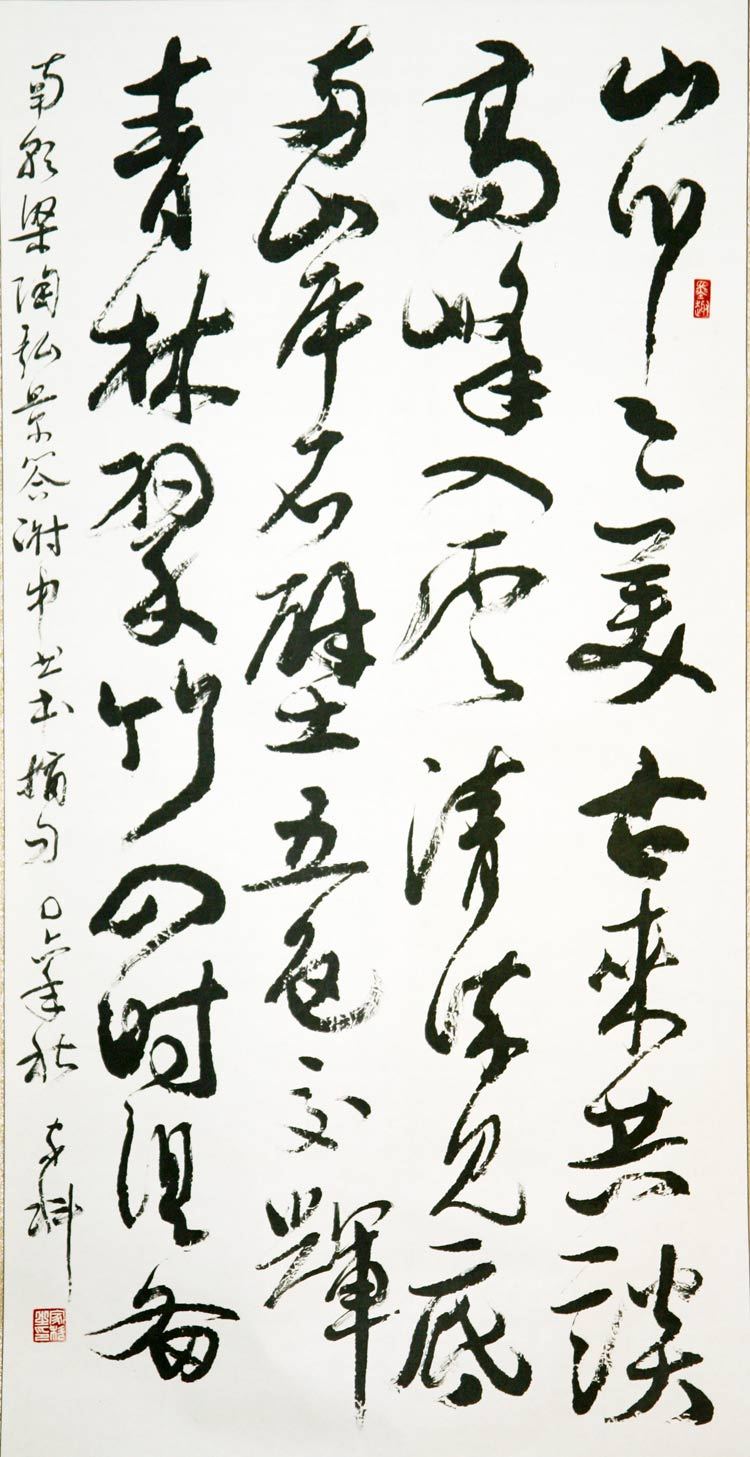 山川之美古來共談
高峰入雲清流见底
两岸石壁五色交輝
青林翠竹四时俱备
南朝梁陶弘景答谢中书书摘句 年秋